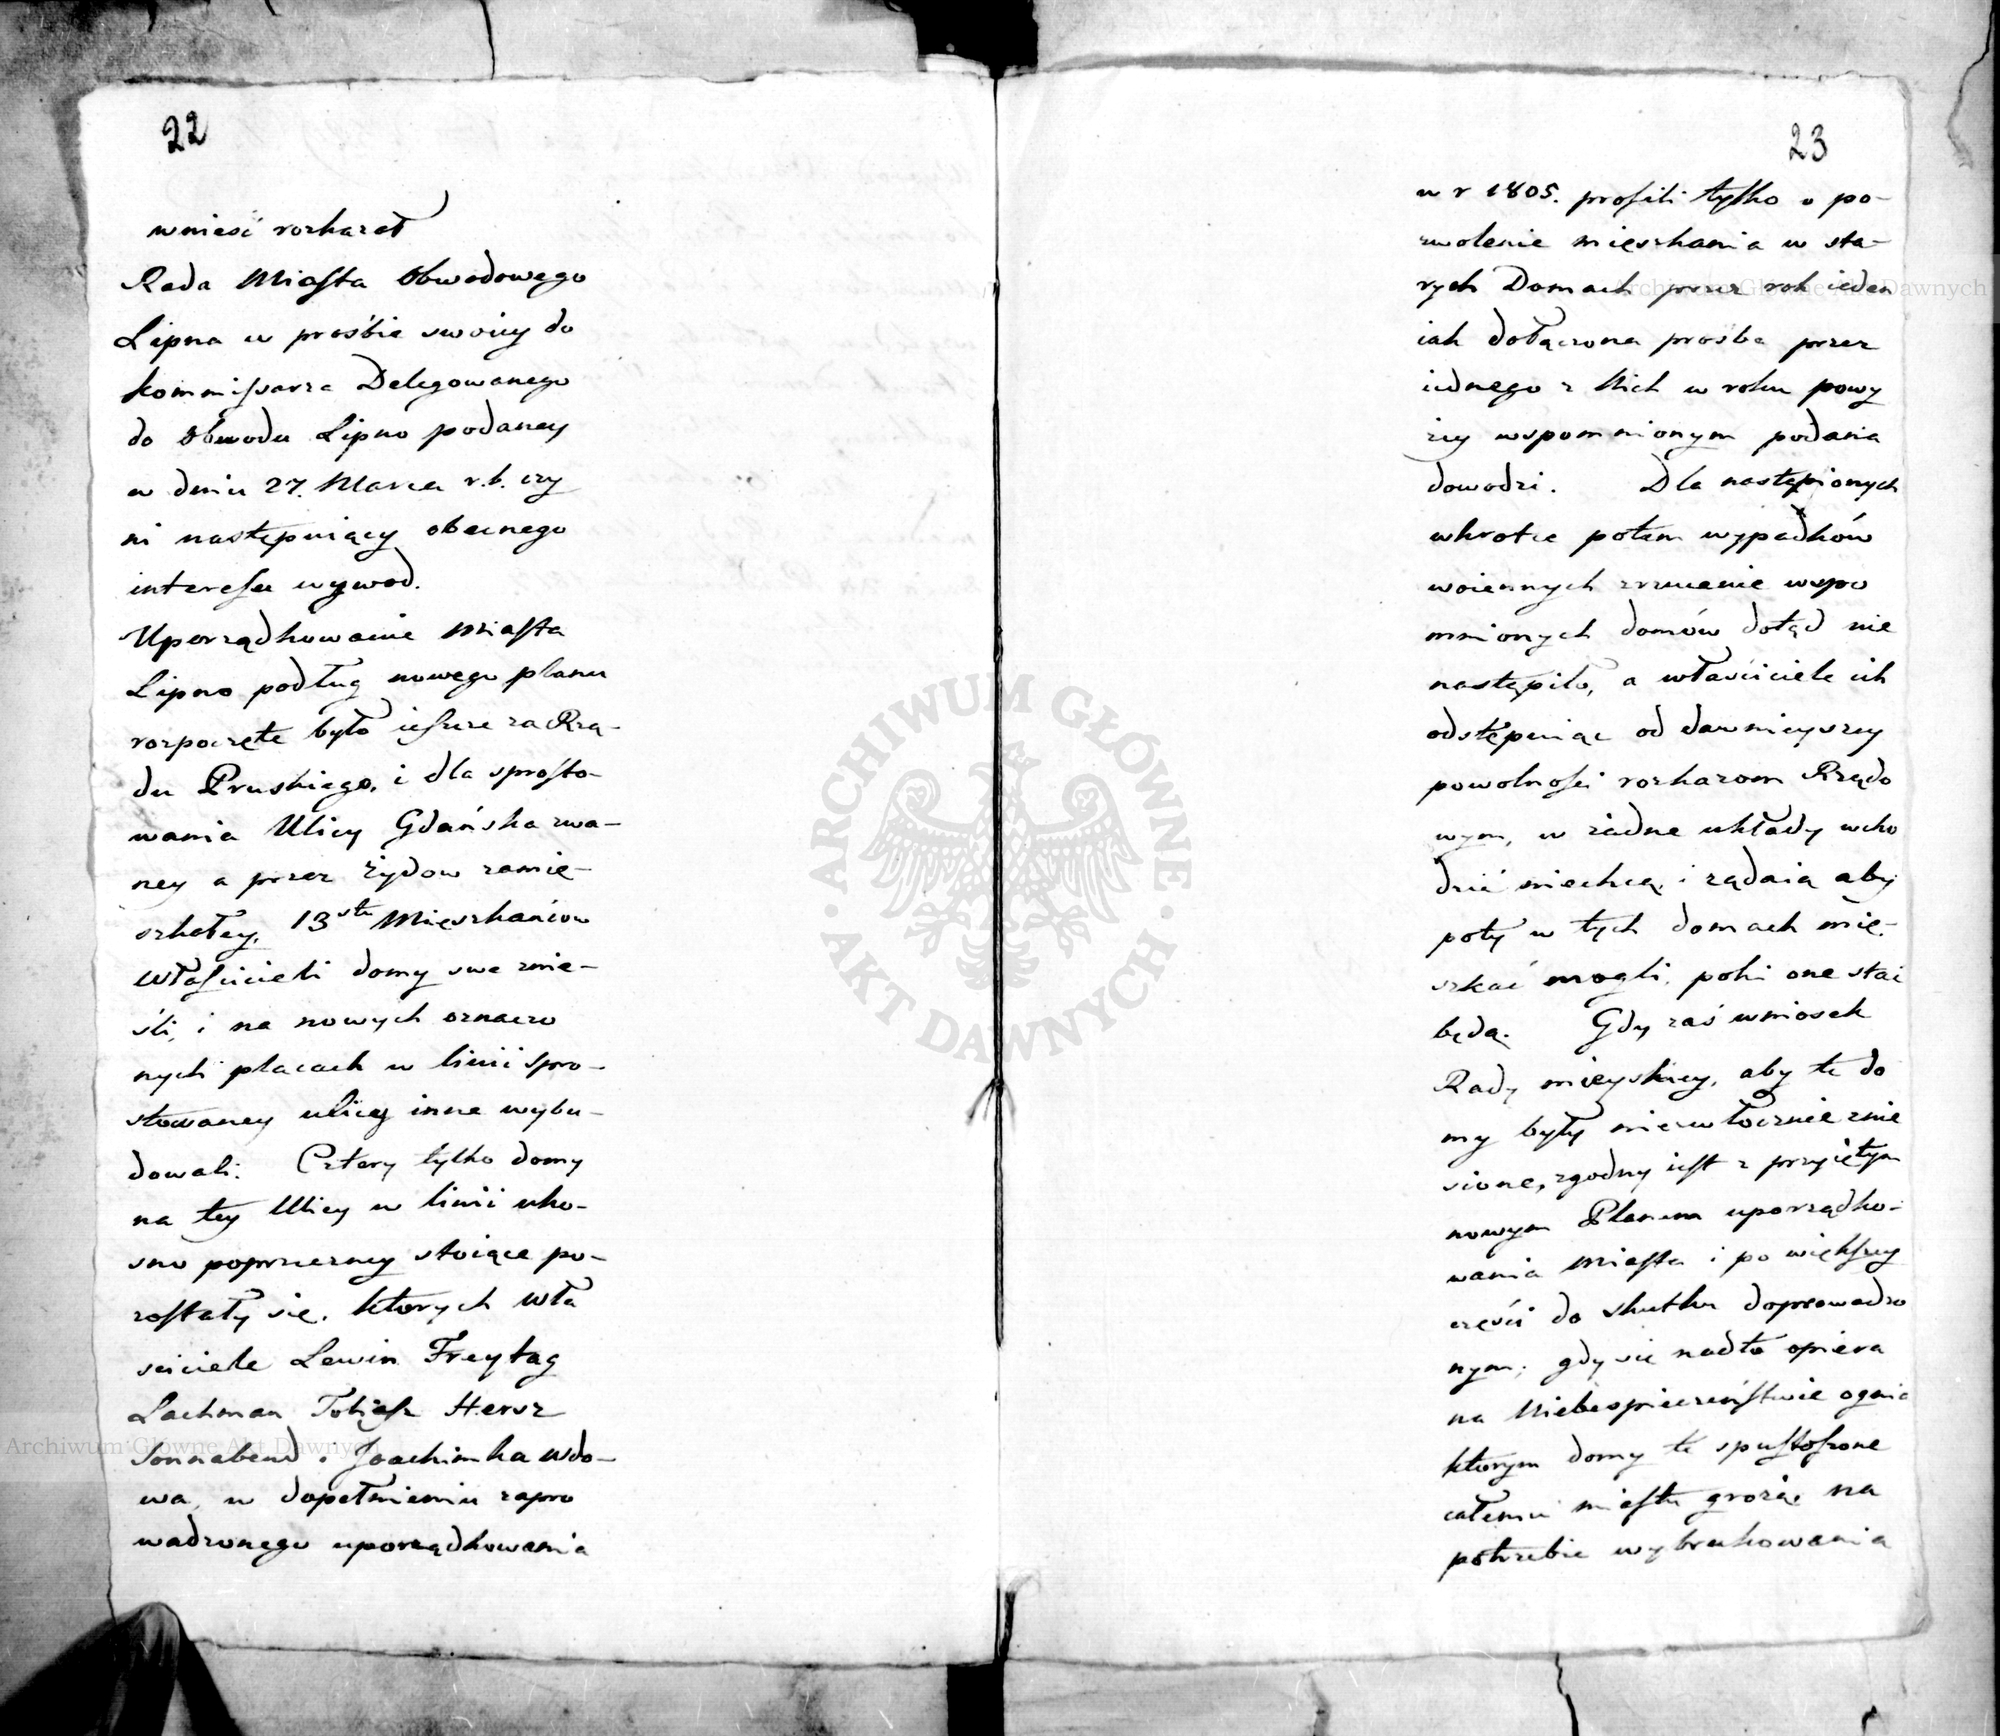 22
wnieść rozkazał
Rada Miasta Obwodowego
Lipna w prośbie swoiey do
Kommissarza Delegowanego
do Obwodu Lipno podaney
w dniu 27. Marca r.b. czy
ni następuiący obecnego
interesu wywod.
Uporządkowanie Miasta
Lipno podług nowego planu
rozpoczęte było ieszcze za Rzą-
du Pruskiego, i dla sprosto-
wania Ulicy Gdańska zwa-
ney a przez żydow zamię-
szkałey, 13stu Mięszkańcow
Właścicieli domy swe znie-
śli, i na nowych oznaczo
nych placach w linii spro-
stowaney ulicy inne wybu-
dowali. Cztery tylko domy
na tey Ulicy w linii uko-
sno poprzeczney stoiące po-
zostały się, ktorych Wła
sciciele Lewin Freytag
Lachman Tobiasz Hersz
Sonnabend i Joachimka Wdo-
wa, w dopełnieniu zapro
wadzonego uporządkowania
23
w r 1805. prosili tylko o po-
zwolenie mięszkania w sta-
rych Domach przez rok ieden
iak dołączona prośba przez
iednego z Nich w roku powy
żey wspomnionym podania
dowodzi. Dla nastąpionych
wkrotce potem wypadków
woiennych zrzucenie wspo
mnionych domów dotąd nie
nastąpiło, a właściciele ich
odstępuiąc od dawnieyszey
powolności rozkazom Rządo
wym, w żadne układy wcho
dzić niechcą, i żądaią aby
poty w tych domach mię-
szkać mogli, poki one stać
będą. Gdy zaś wniosek
Rady mieyskiey, aby te do
my były niezwłocznie znie
sione, zgodny iest z przyiętym
nowym Planem uporządko-
wania Miasta i po większey
części do skutku doprowadzo
nym; gdy się nadto opiera
na Niebespieczeństwie ognia
ktorym domy te spustoszone
całemu miastu grożą, na
potrzebie wybrukowania
Archiwum Główne Akt Dawnych
Archiwum Główne Akt Dawnych
ARCHIWUM GŁÓWNE
AKT DAWNYCH